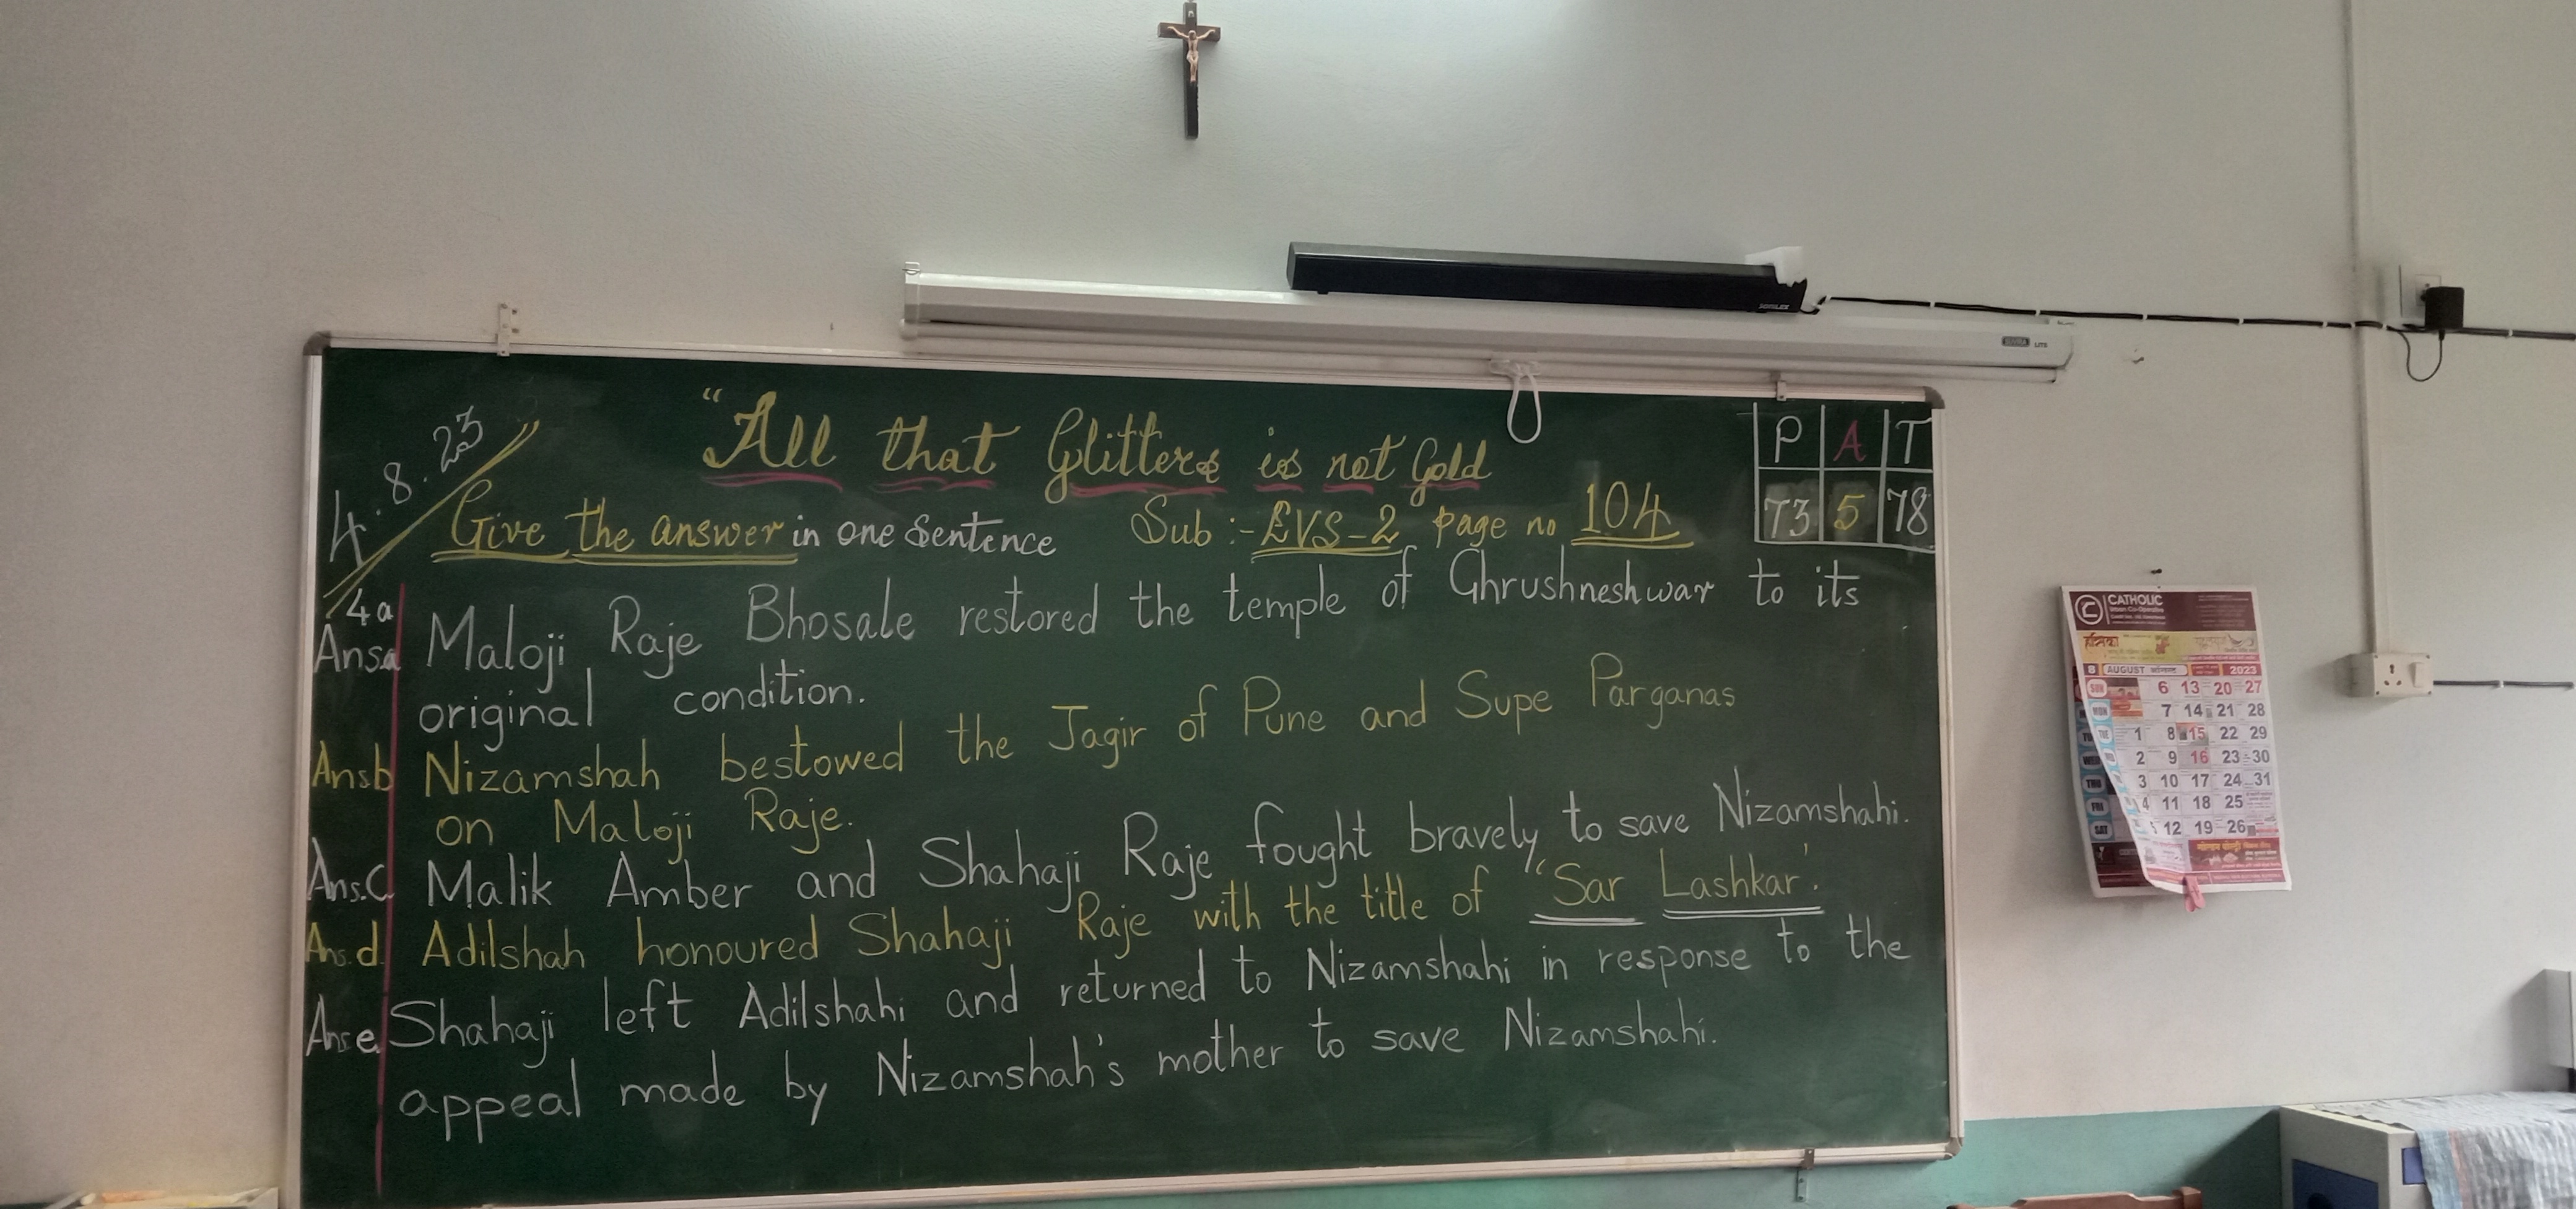 4.8.23
"All that Glitters is not Gold
P A T
73 5 78
Give the answer in one sentence Sub :- EVS-2 page no 104
4a
Ansa Maloji Raje Bhosale restored the temple of Ghrushneshwar to its
original condition.
Ansb Nizamshah bestowed the Jagir of Pune and Supe Parganas
on Maloji Raje.
Ans.C Malik Amber and Shahaji Raje fought bravely to save Nizamshahi.
Ans.d. Adilshah honoured Shahaji Raje with the title of "Sar Lashkar'.
Ans e Shahaji left Adilshahi and returned to Nizamshahi in response to the
appeal made by Nizamshah's mother to save Nizamshahi.
LITE
CATHOLIC
8 AUGUST ऑगस्ट 2023
SUN 6 13 20 27
MON 7 14 21 28
TUE 1 8 15 22 29
WED 2 9 16 23 30
THU 3 10 17 24 31
FRI 4 11 18 25
SAT 5 12 19 26